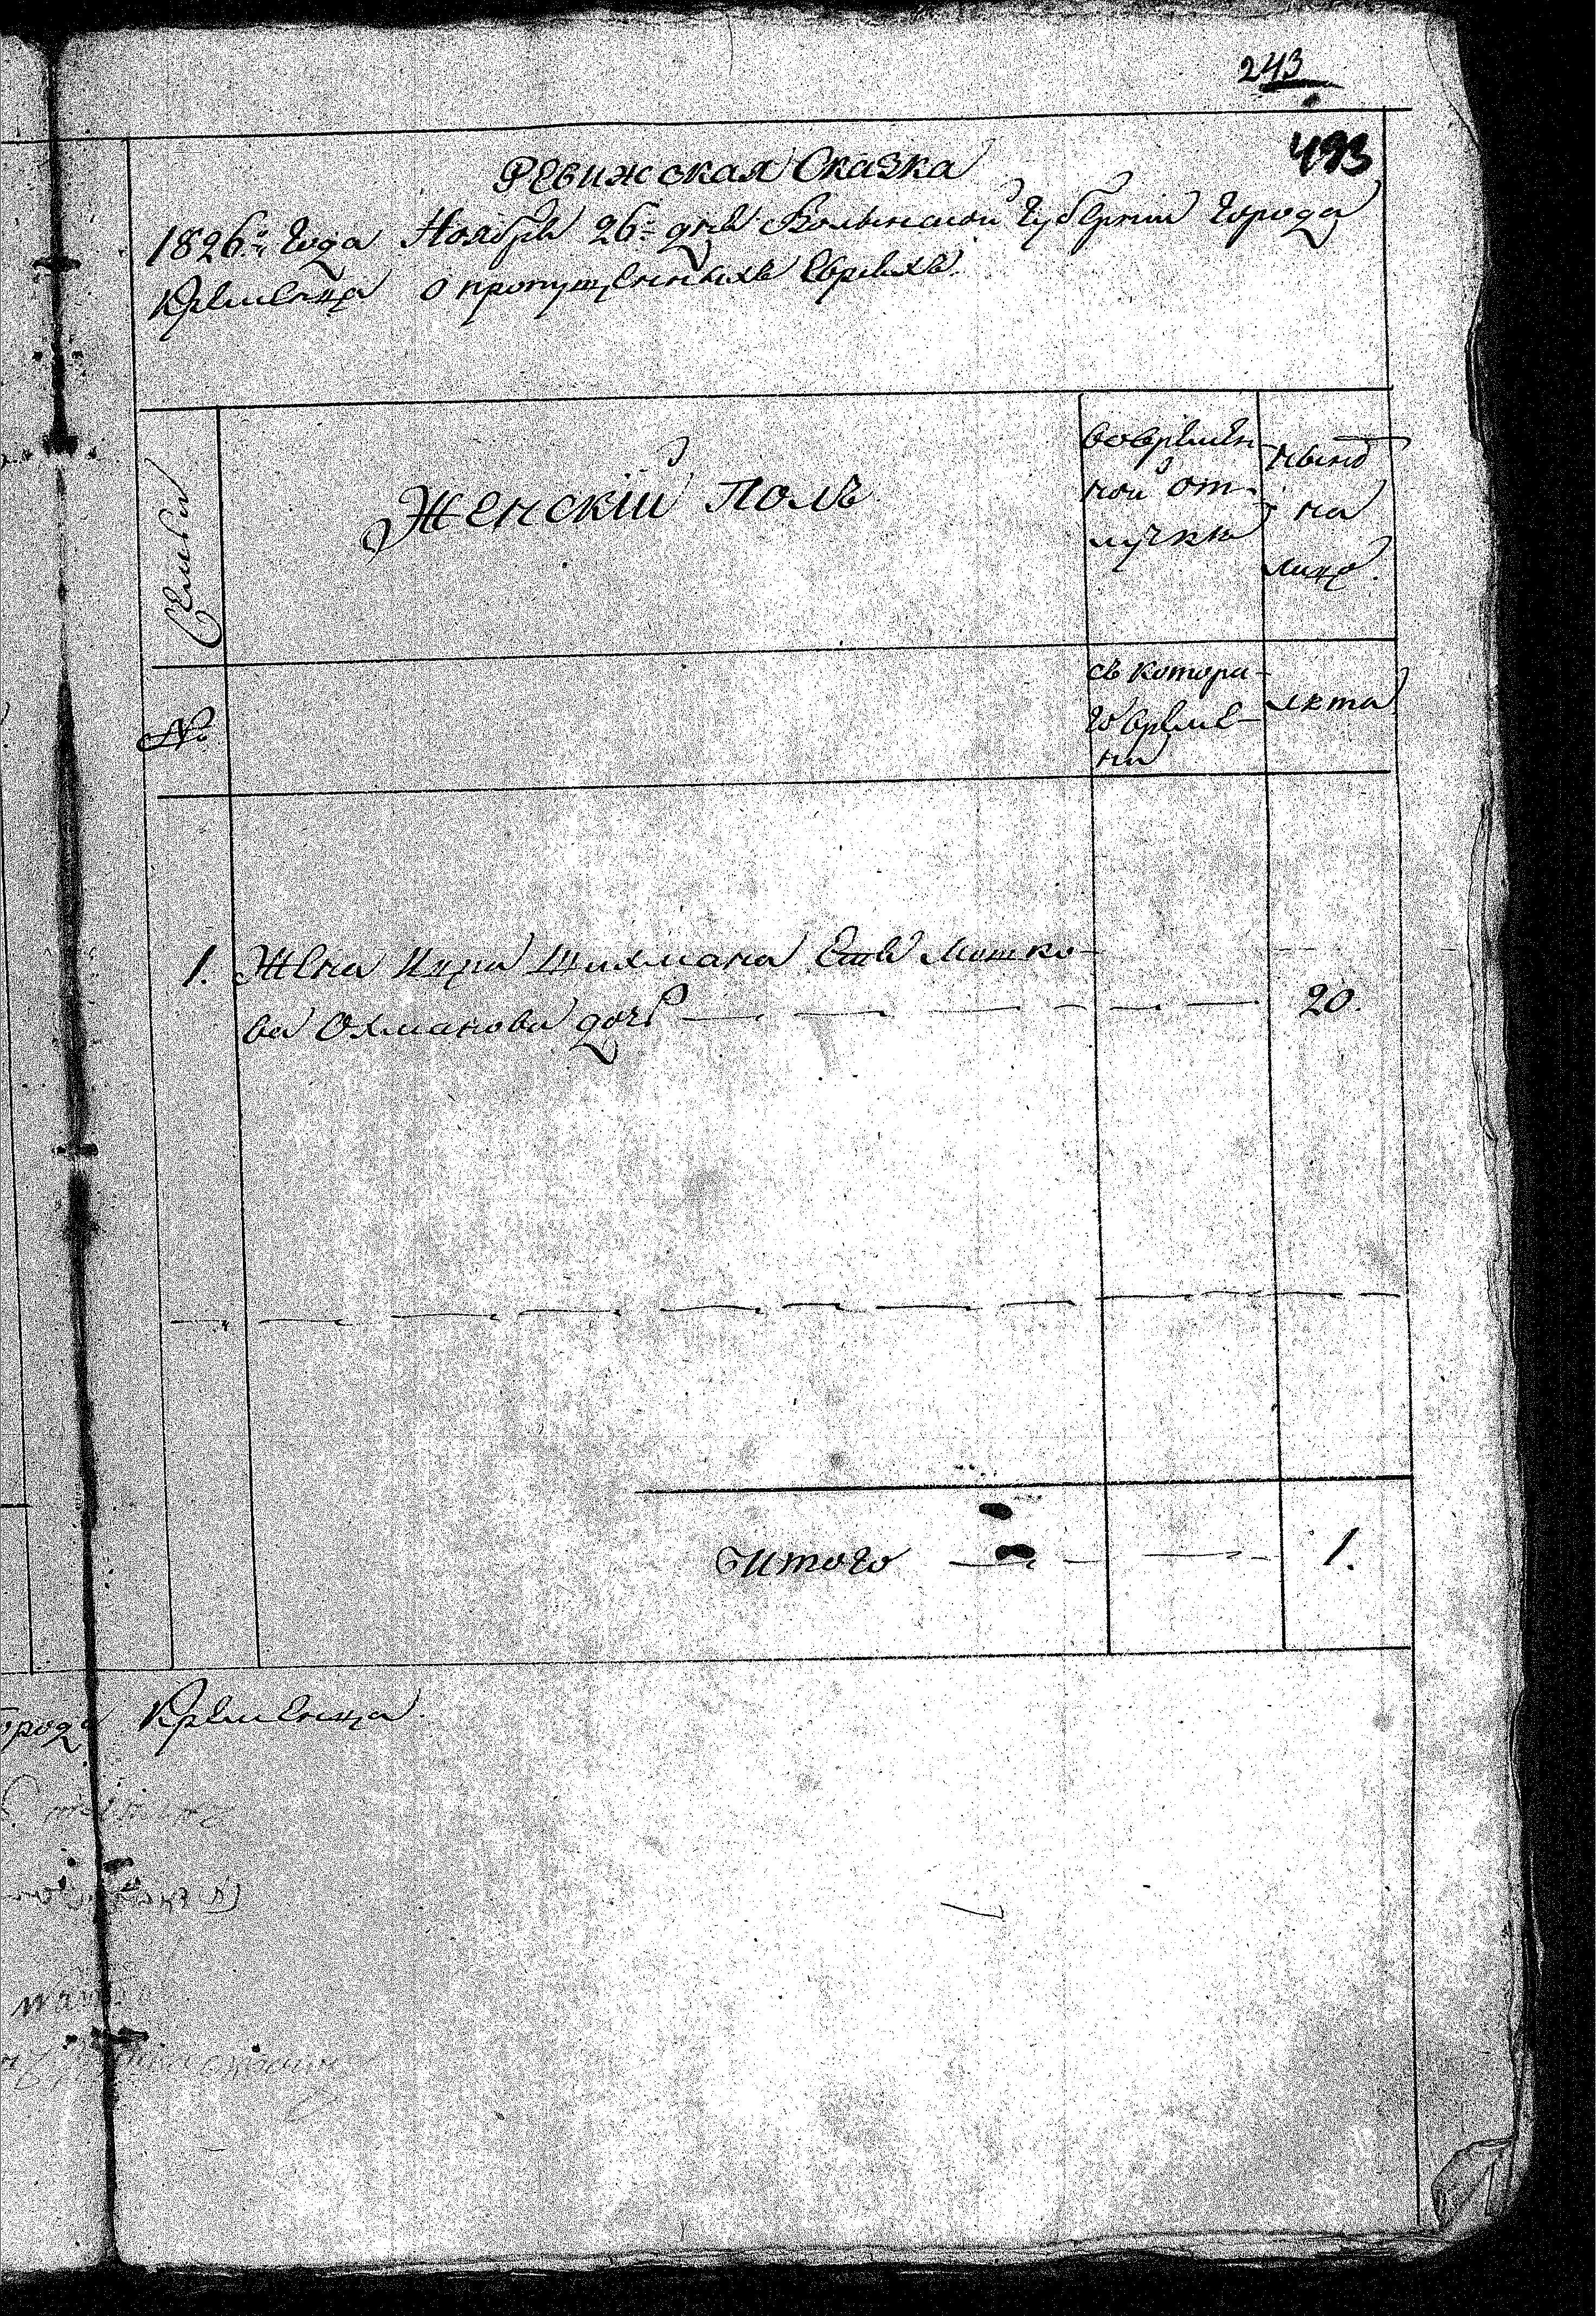 243
493
Ревижская Сказка
1826го года Ноября 26го дня Волынской Губернии Города
Кременца о пропущенныхъ Евреяхъ.
Семьи
Женскій Полъ
вовремен
ной от-
лучки
ныне
на
лицо.
№
съ котора-
го време-
ни
лета
1. Жена Ицка Шихмана Мошко-
ва Охманова дочь 20.
Итого 1.
Кременца